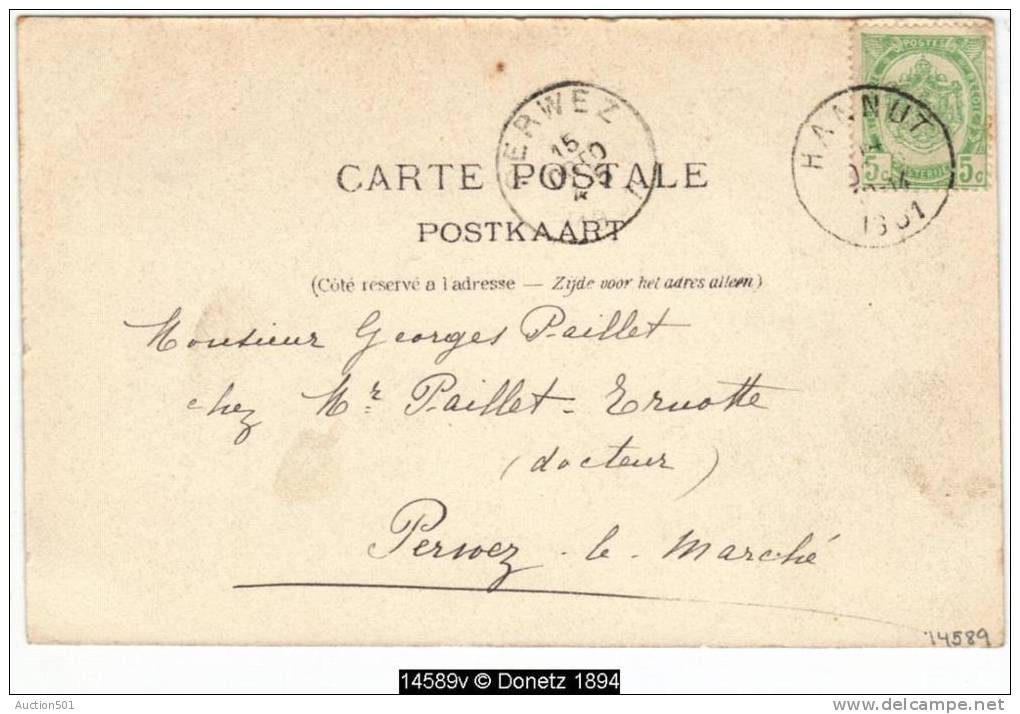 POSTES
HANNUT
1901
5c 5c
PERWEZ
15
CARTE POSTALE
POSTKAART
(Côté réservé a l'adresse — Zijde voor het adres alleen)
Monsieur Georges Paillet
chez Mr Paillet-Ernotte
(docteur)
Perwez-le-Marché
14589
14589v © Donetz 1894
Auction501
www.delcampe.net